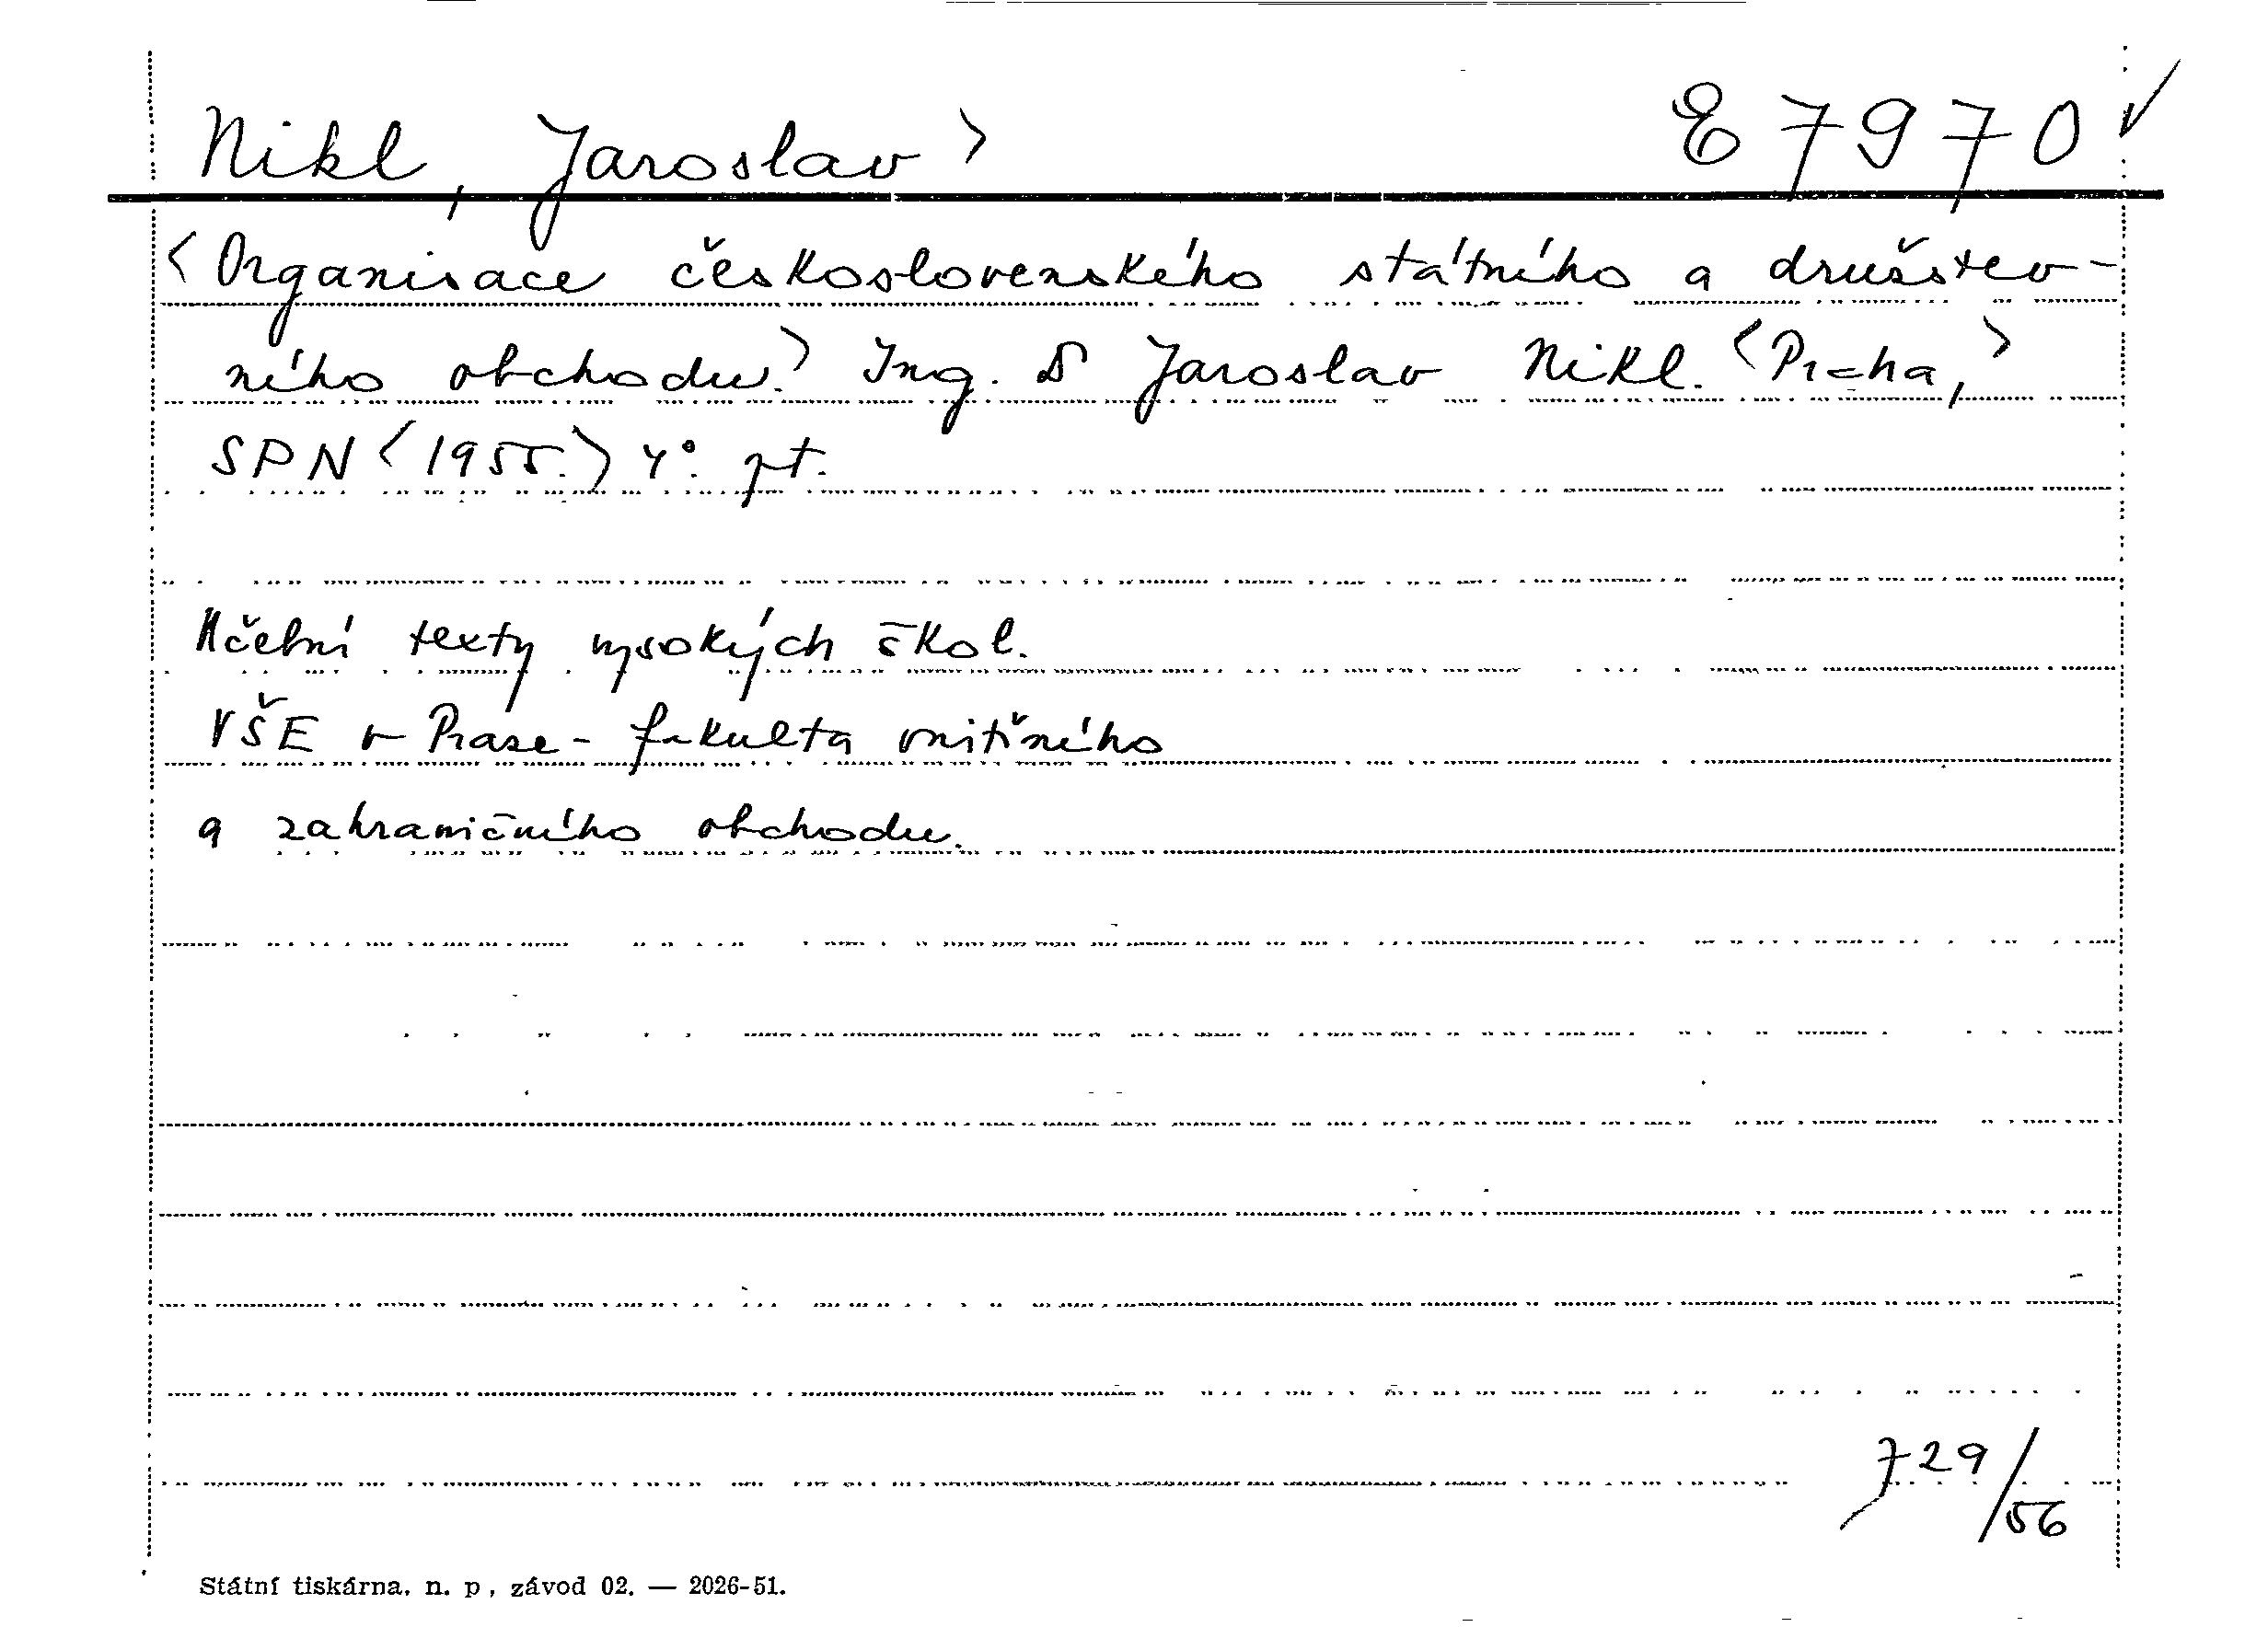 Nikl, Jaroslav > E 7970 ✓
<Organisace československého státního a družstev-
ního obchodu.> Ing. Jaroslav Nikl. <Praha,>
SPN <1955.> 4°. pt.
Učební texty vysokých škol.
VŠE v Praze - fakulta vnitřního
a zahraničního obchodu.
729/56
Státní tiskárna, n. p., závod 02. — 2026-51.